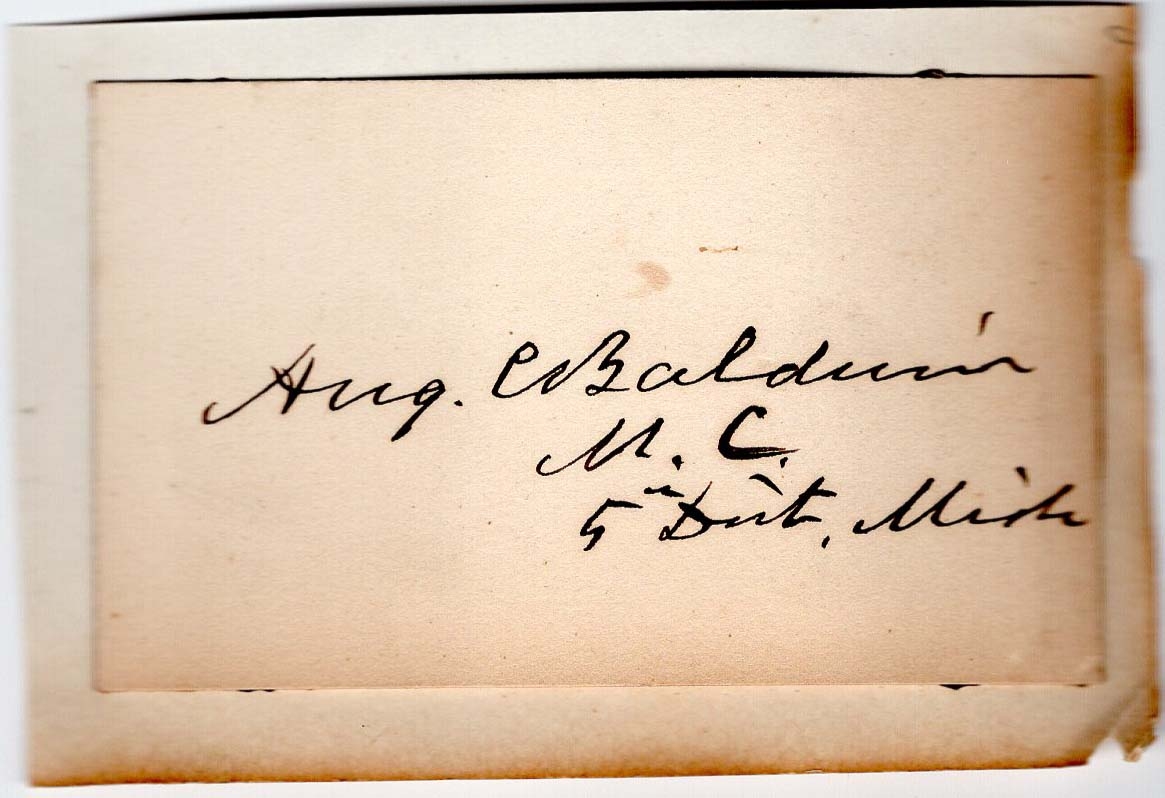 Aug. C Baldwin
M. C.
5th Dist, Mich